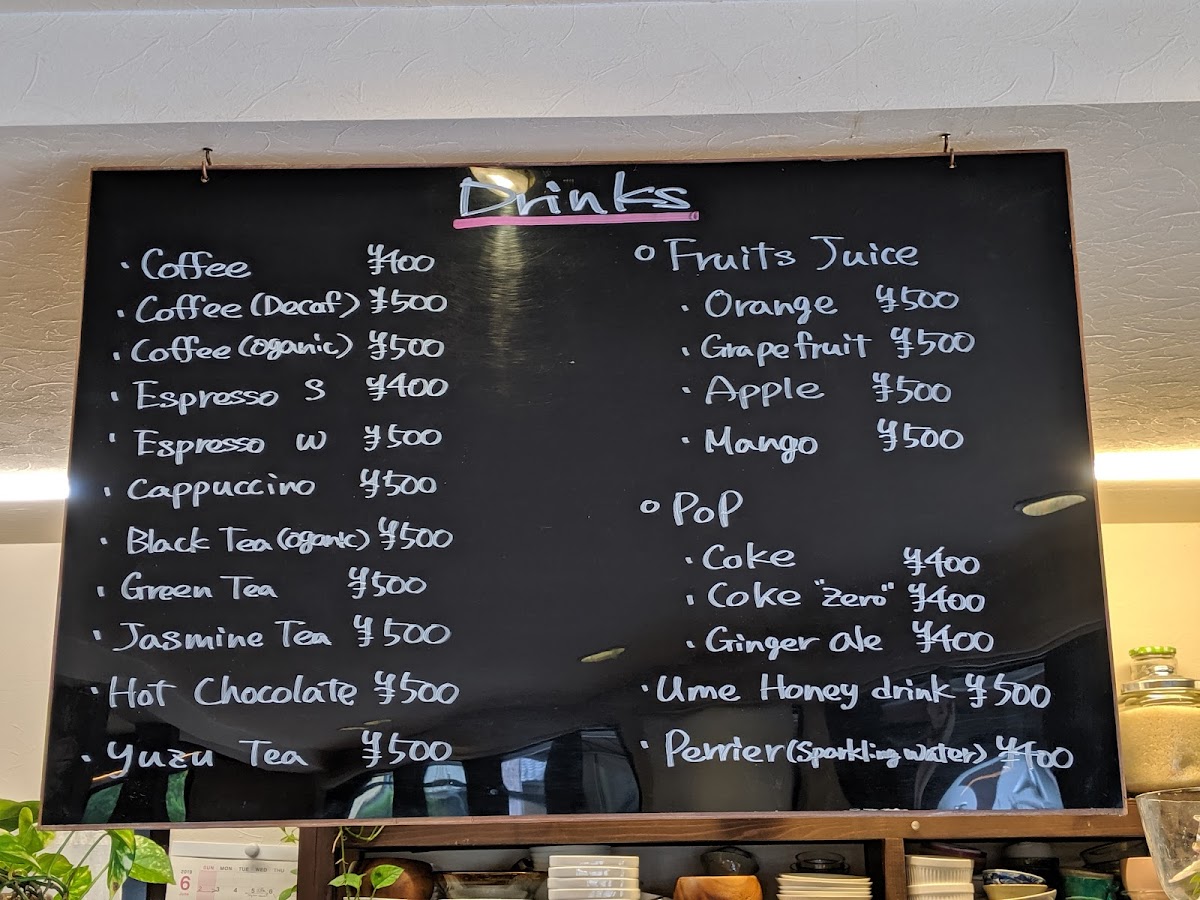 Drinks
· Coffee ¥400
· Coffee (Decaf) ¥500
· Coffee (oganic) ¥500
· Espresso S ¥400
· Espresso W ¥500
· Cappuccino ¥500
· Black Tea (oganic) ¥500
· Green Tea ¥500
· Jasmine Tea ¥500
· Hot Chocolate ¥500
· Yuzu Tea ¥500
○ Fruits Juice
· Orange ¥500
· Grapefruit ¥500
· Apple ¥500
· Mango ¥500
○ Pop
· Coke ¥400
· Coke "Zero" ¥400
· Ginger ale ¥400
· Ume Honey drink ¥500
· Perrier (Sparkling water) ¥400
2019 SUN MON TUE WED THU
6